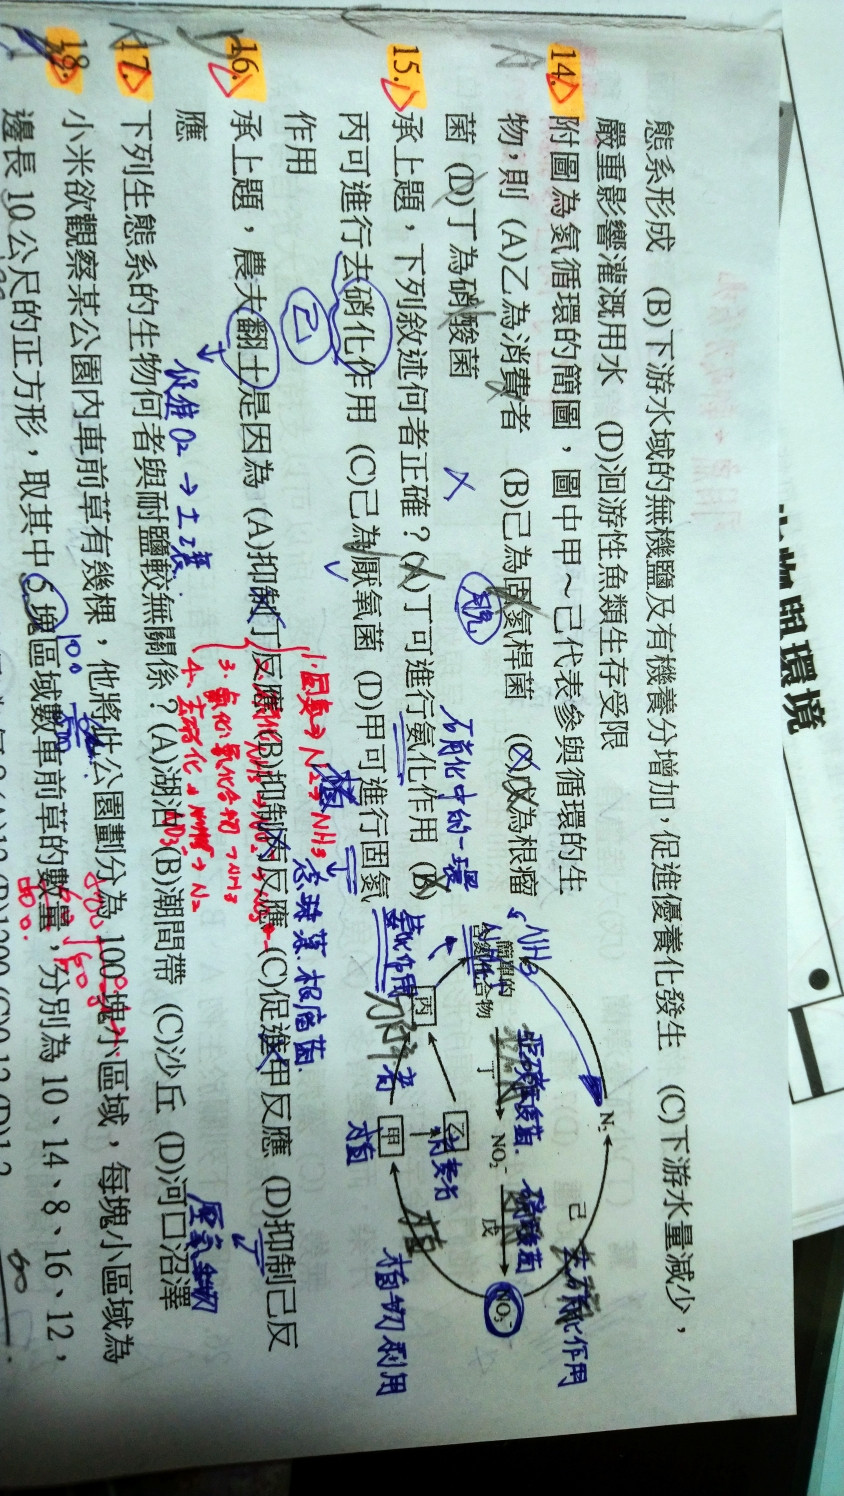 生物與環境
態系形成 (B)下游水域的無機鹽及有機養分增加，促進優養化發生 (C)下游水量減少，
嚴重影響灌溉用水 (D)洄游性魚類生存受限
14. 附圖為氮循環的簡圖，圖中甲～己代表參與循環的生
物，則 (A)乙為消費者 (B)己為固氮桿菌 (C)戊為根瘤
菌 (D)丁為硝酸菌
15. 承上題，下列敘述何者正確？(A)丁可進行氨化作用 (B)
丙可進行去硝化作用 (C)己為厭氧菌 (D)甲可進行固氮
作用
16. 承上題，農夫翻土是因為 (A)抑制丁反應 (B)抑制丙反應 (C)促進甲反應 (D)抑制己反
應
17. 下列生態系的生物何者與耐鹽較無關係？(A)湖泊 (B)潮間帶 (C)沙丘 (D)河口沼澤
18. 小米欲觀察某公園內車前草有幾棵，他將此公園劃分為 100 塊小區域，每塊小區域為
邊長 10 公尺的正方形，取其中 5 塊區域數車前草的數量，分別為 10、14、8、16、12，
N₂
己
去硝化作用
簡單的
含氮化合物
NH₃
丁
亞硝酸菌
NO₂⁻
戊
硝酸菌
NO₃⁻
丙
乙
消費者
甲
植物利用
氨化作用
硝化中的一環
己
促進 O₂ → 土壤
1. 固氮 → N₂ → NH₃
念珠藻、根瘤菌
厭氧生物